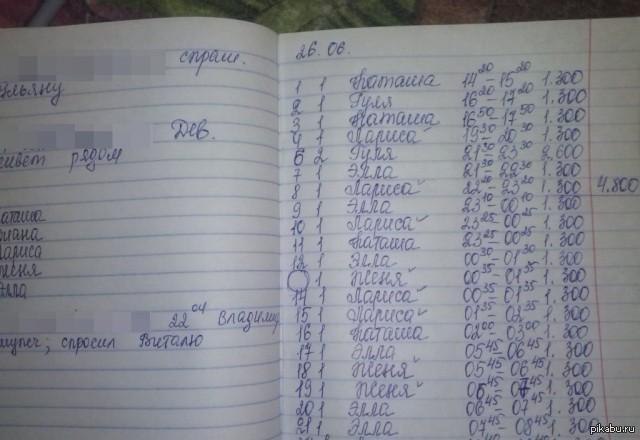 спраш.
Ульяну
Дев.
живёт рядом
Наташа
Диана
Лариса
Женя
Элла
22 04 Владимир
спросил Виталю
26. 06.
1 1 Наташа 14 20 - 15 20 1.300
2 1 Гуля 16 20 - 17 20 1.300
3 1 Наташа 16 50 - 17 50 1.300
4 1 Лариса 19 30 - 20 30 1.300
6 2 Гуля 21 30 - 23 30 2.600
7 1 Элла 21 30 - 22 30 1.300
8 1 Лариса 22 20 - 23 20 1.300 4.800
9 1 Элла 23 10 - 00 10 1.300
10 1 Лариса 23 25 - 00 25 1.300
11 1 Наташа 23 25 - 00 25 1.300
12 1 Элла 00 30 - 01 30 1.300
1 Женя 00 35 - 01 35 1.300
14 1 Лариса 00 35 - 01 35 1.300
15 1 Лариса 01 35 - 02 35 1.300
16 1 Наташа 02 00 - 03 00 1.300
17 1 Элла 05 45 - 06 45 1.300
18 1 Женя 05 45 - 06 45 1.300
19 1 Женя 06 45 - 07 45 1.300
20 1 Элла 06 45 - 07 45 1.300
21 1 Элла 07 45 - 08 45 1.300
pikabu.ru